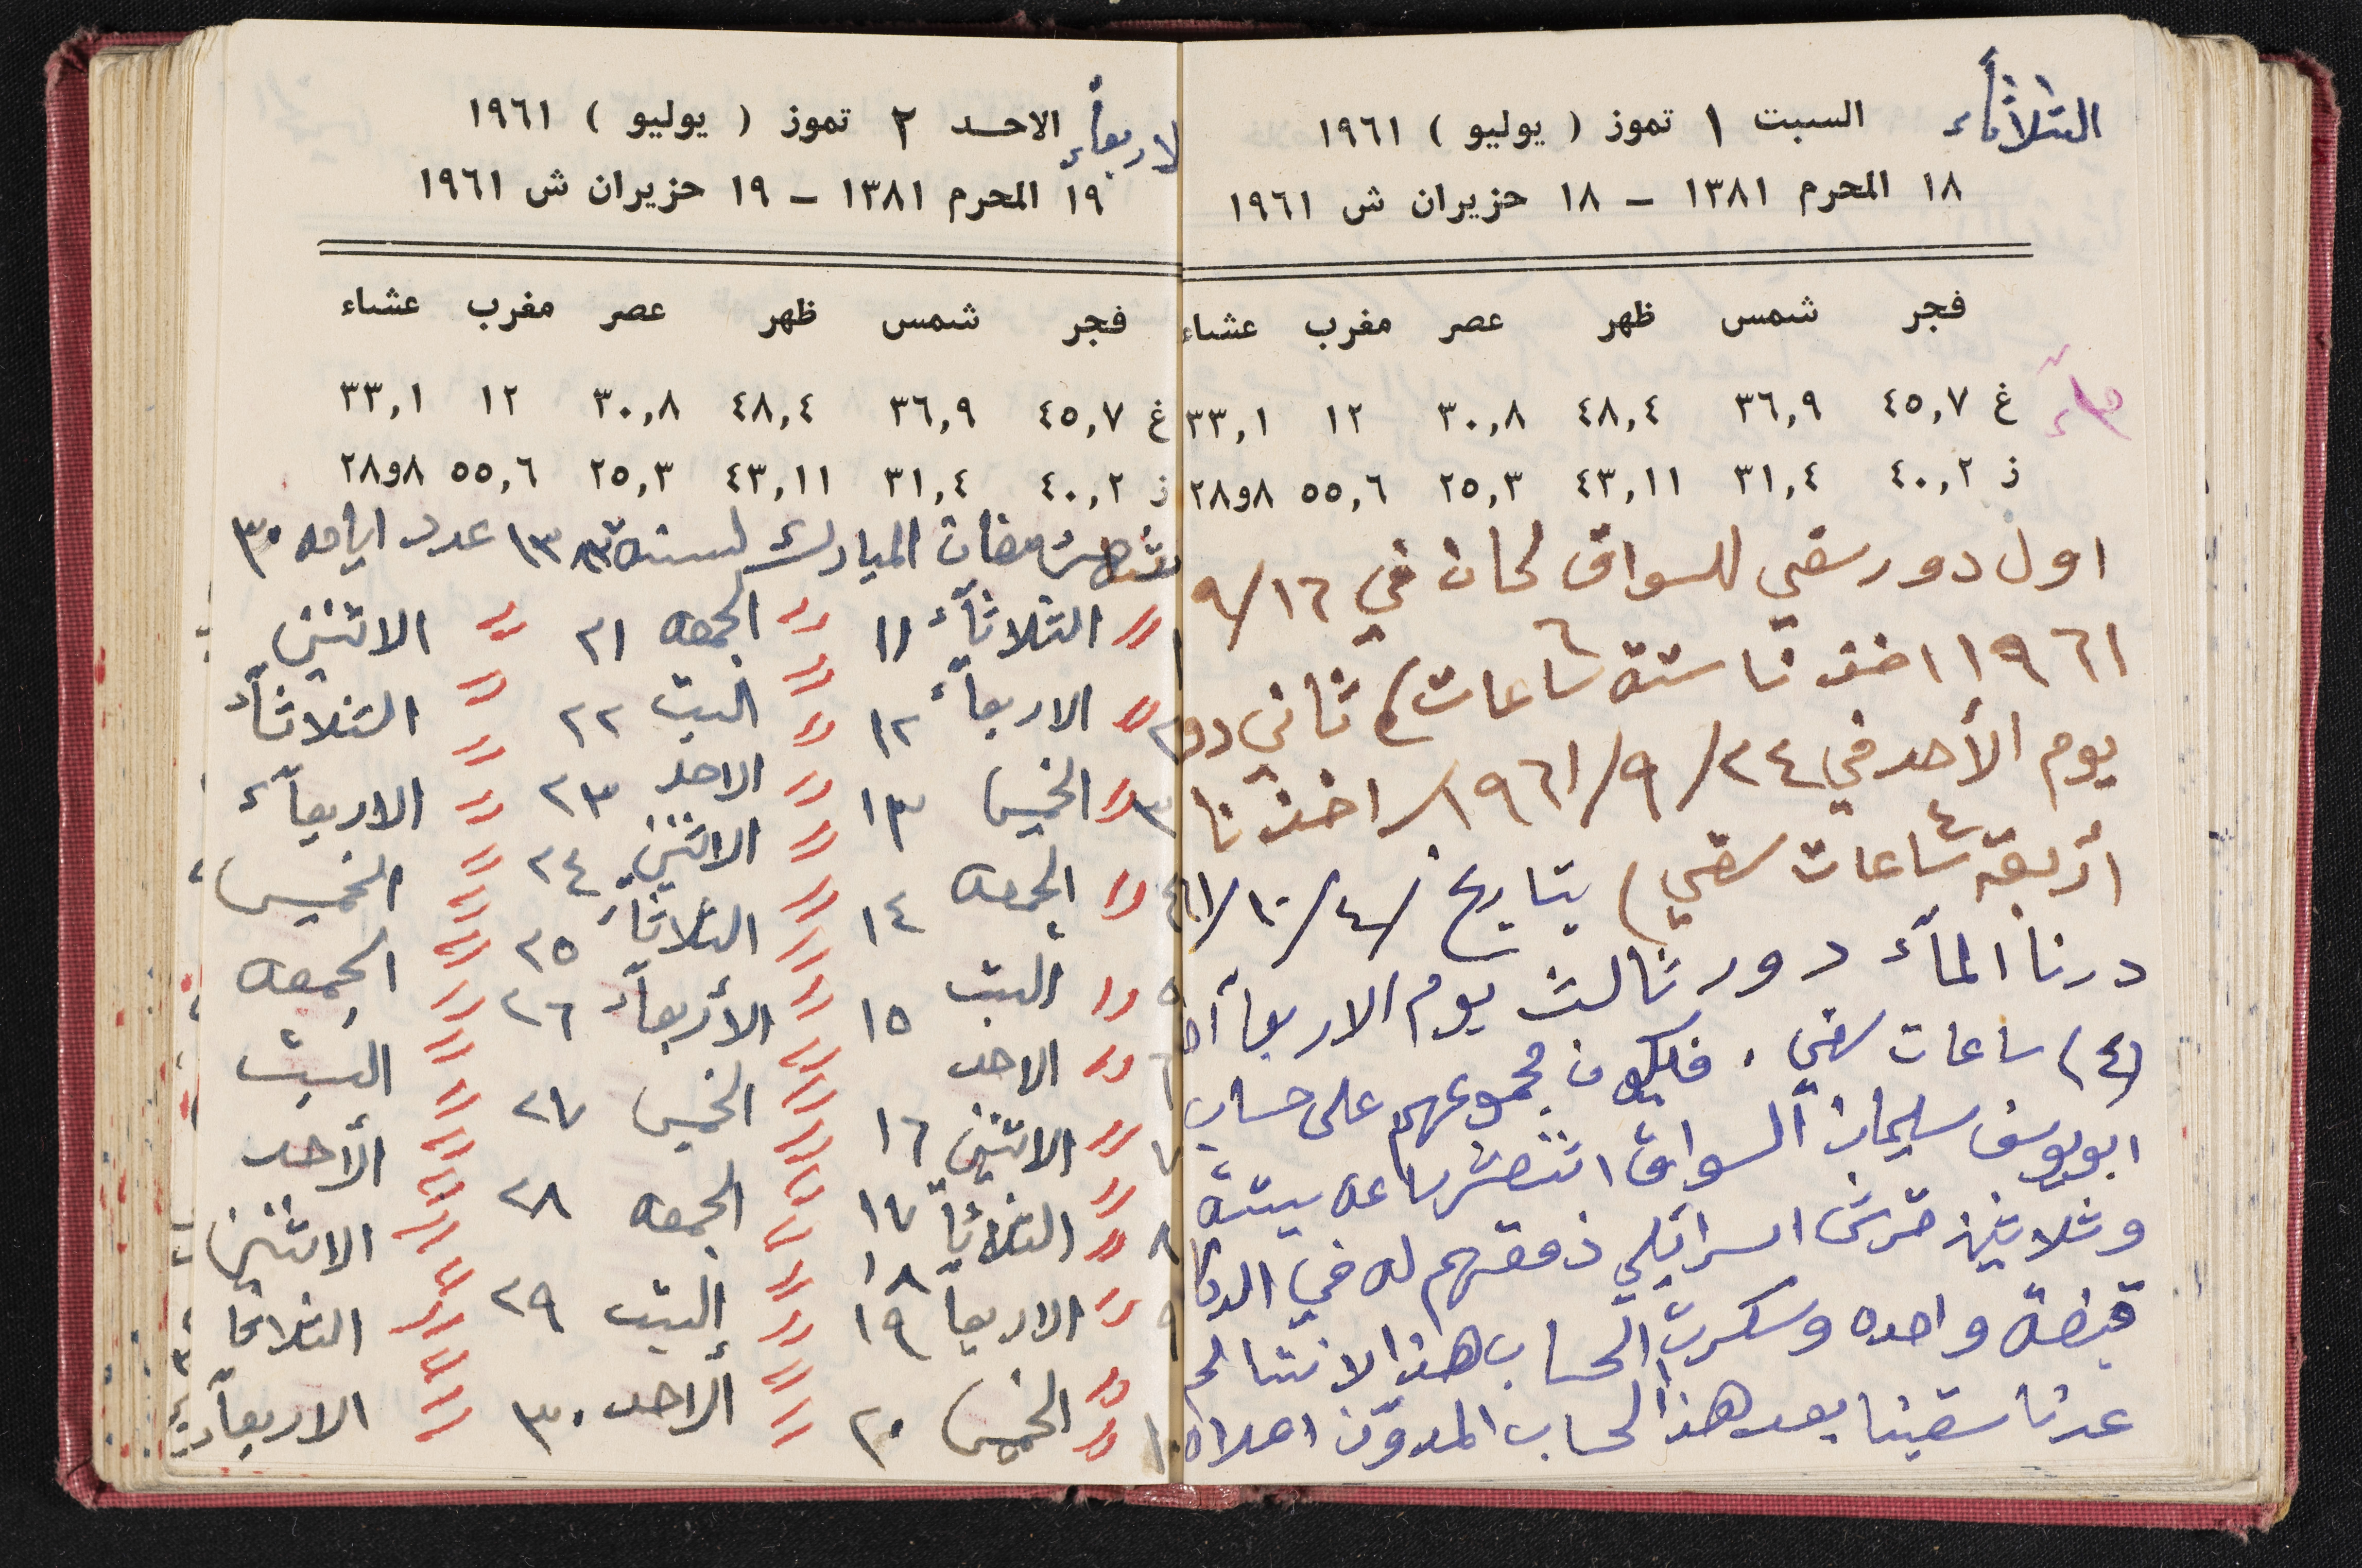 الثلاثأء
السبت ١ تموز ( يوليو ) ١٩٦١
١٨ المحرم ١٣٨١ – ١٨ حزيران ش ١٩٦١
فجر شمس ظهر عصر مغرب عشاء
غ ٤٥,٧ ٣٦,٩ ٤٨,٤ ٣٠,٨ ١٢ ٣٣,١
ز ٤٠,٢ ٣١,٤ ٤٣,١١ ٢٥,٣ ٥٥,٦ ٨و٢٨
اول دور سقي للسواق لحان في ١٦/٩
١٩٦١ اخذنا ستة ٦ ساعات) ثاني دو
يوم الأحد في ٢٤/٩/١٩٦١/ اخذنا
أربعة ٤ ساعات سقي) بتاريخ /٤/١٠/٦١
درنا المآء دور ثالث يوم الاربعآ اخ
(٤) ساعات سقي . فيكون مجموعهم على حساب
ابو يوسف سليمان السواق اثنعشر ساعه بيتة
وثلاثين قرش اسرائلي دفعتهم له في الدكا
قبضة واحده وسكرت الحساب هذا لاننا لم
عدنا سقينا بعد هذا الحساب المدوّن اعلاه
لاربعأء
الاحد ٢ تموز ( يوليو ) ١٩٦١
١٩ المحرم ١٣٨١ – ١٩ حزيران ش ١٩٦١
فجر شمس ظهر عصر مغرب عشاء
غ ٤٥,٧ ٣٦,٩ ٤٨,٤ ٣٠,٨ ١٢ ٣٣,١
ز ٤٠,٢ ٣١,٤ ٤٣,١١ ٢٥,٣ ٥٥,٦ ٨و٢٨
رمضان المبارك لسنة ١٣٨٣ عدد ايامه ٣٠
١ " الثلاثآء ١١ " الجمعه ٢١ " الاثنين
٢ " الاربعآء ١٢ " السبت ٢٢ " الثلاثآء
٣ " الخميس ١٣ " الاحد ٢٣ " الاربعآء
٤ " الجمعه ١٤ " الاثنين ٢٤ " الخميس
٥ " السبت ١٥ " الثلاثآء ٢٥ " الجمعه
٦ " الاحد ١٦ " الأربعآء ٢٦ " السبت
٧ " الاثنين ١٧ " الخميس ٢٧ " الأحد
٨ " الثلاثآ ١٨ " الجمعه ٢٨ " الاثنين
٩ " الاربعآ ١٩ " السبت ٢٩ " الثلاثا
١٠ " الخميس ٢٠ " الاحد ٣٠ " الاربعآء